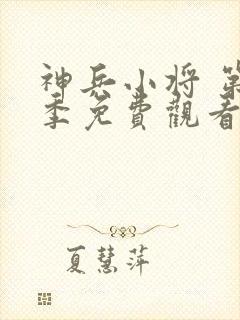 神兵小将 第
季免費觀看
夏慧萍